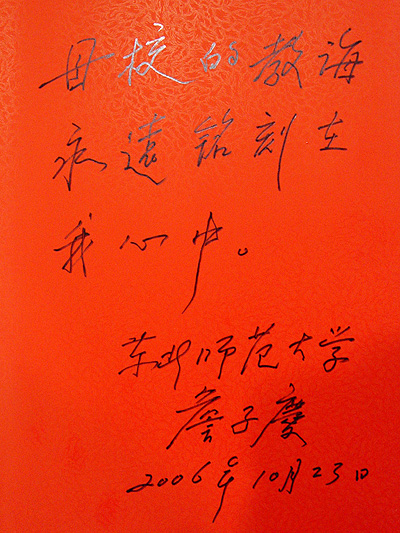 母校的教诲
永遠铭刻在
我心中。
东北师范大学
詹子慶
2006年10月23日